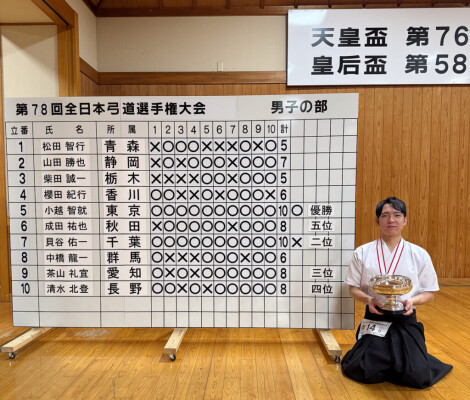 天皇盃 第76
皇后盃 第58
第78回全日本弓道選手権大会 男子の部
立番 氏名 所属 1 2 3 4 5 6 7 8 9 10 計
1 松田 智行 青森 ×○○○×××○×○ 5
2 山田 勝也 静岡 7
3 柴田 誠一 栃木 5
4 櫻田 紀行 香川 6
5 小越 智就 東京 ○○○○○○○○○○ 10 ○ 優勝
6 成田 祐也 秋田 8 五位
7 貝谷 佑一 千葉 ○○○○○○○○○○ 10 × 二位
8 中橋 龍一 群馬 6
9 茶山 礼宜 愛知 8 三位
10 清水 北登 長野 8 四位
14